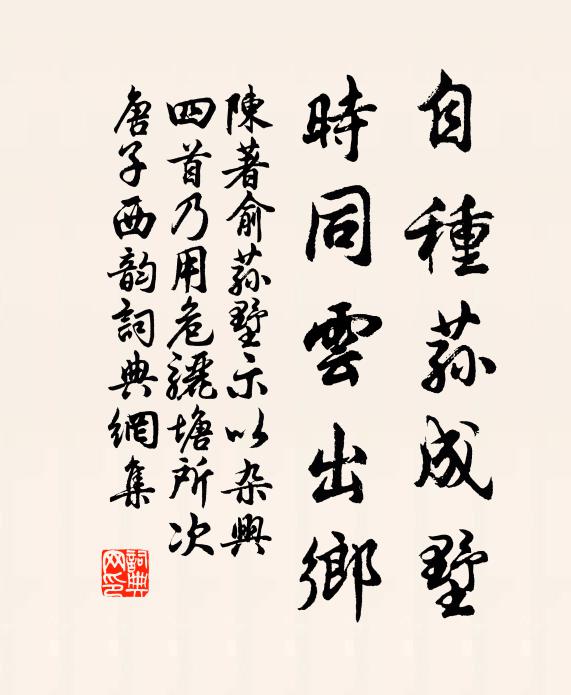 自種蓀成墅
時同雲出鄉
陳著俞蓀墅示以杂興
四首乃用危驪塘所次
唐子西韵詞典網集
詞典网印